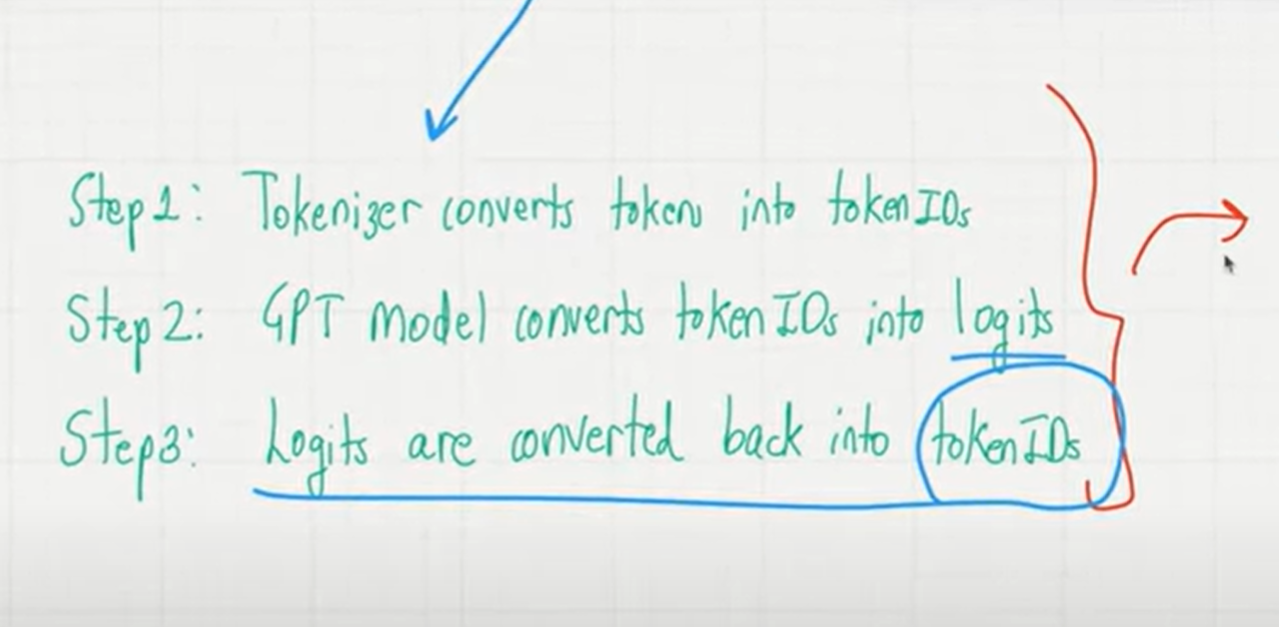 Step1: Tokenizer converts token into token IDs
Step2: GPT model converts token IDs into logits
Step3: Logits are converted back into token IDs